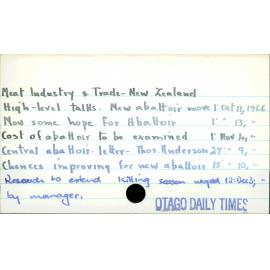 Meat Industry & Trade - New Zealand
High-level talks. New abattoir move 1' Oct 11, 1966
Now some hope for Abattoir 1' " 13, "
Cost of abattoir to be examined 1' Nov 4, "
Central abattoir - letter - Thos. Anderson 27' " 9, "
Chances improving for new abattoir 15 " 10, "
Research to extend killing season urged 12: Dec 3, "
by manager.
OTAGO DAILY TIMES